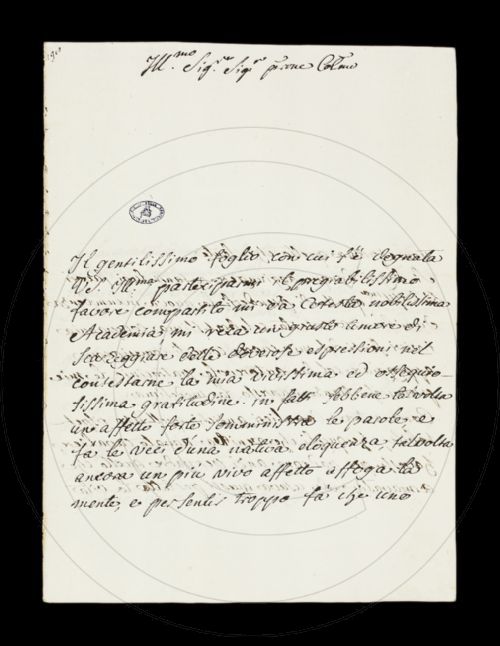 Ill.mo Sig.re Sig.re prone Col.mo
Il gentilissimo foglio con cui s'è degnata
V.S. Ill.ma parteciparmi il pregiabilissimo
favore compartitomi da cotesta nobilissima
Academia, mi reca un giusto timore di
scarseggiare delle doverose espressioni nel
contestarne la mia vivissima ed ossequio-
sissima gratitudine. in fatti sebbene talvolta
un affetto forte somministra le parole, e
fa le veci d'una nativa eloquenza, talvolta
ancora un più vivo affetto affoga la
mente, e per sentir troppo fà che uno